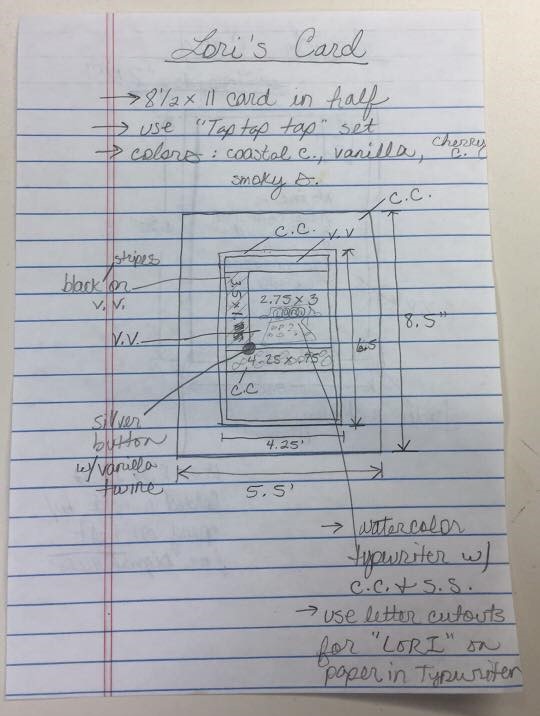 Lori's Card
→ 8 1/2 x 11 card in half
→ use "Tap tap tap" set
→ colors: coastal c., vanilla, cherry c.
smoky s.
C.C.
C.C.
V.V
stripes
black on
V.V.
3.5 x 1.
2.75 x 3
8.5"
V.V.
6.5
4.25 x .75
C.C
silver
button
w/vanilla
twine
4.25'
5.5'
→ watercolor
typewriter w/
C.C. + S.S.
→ use letter cutouts
for "LORI" on
paper in typewriter